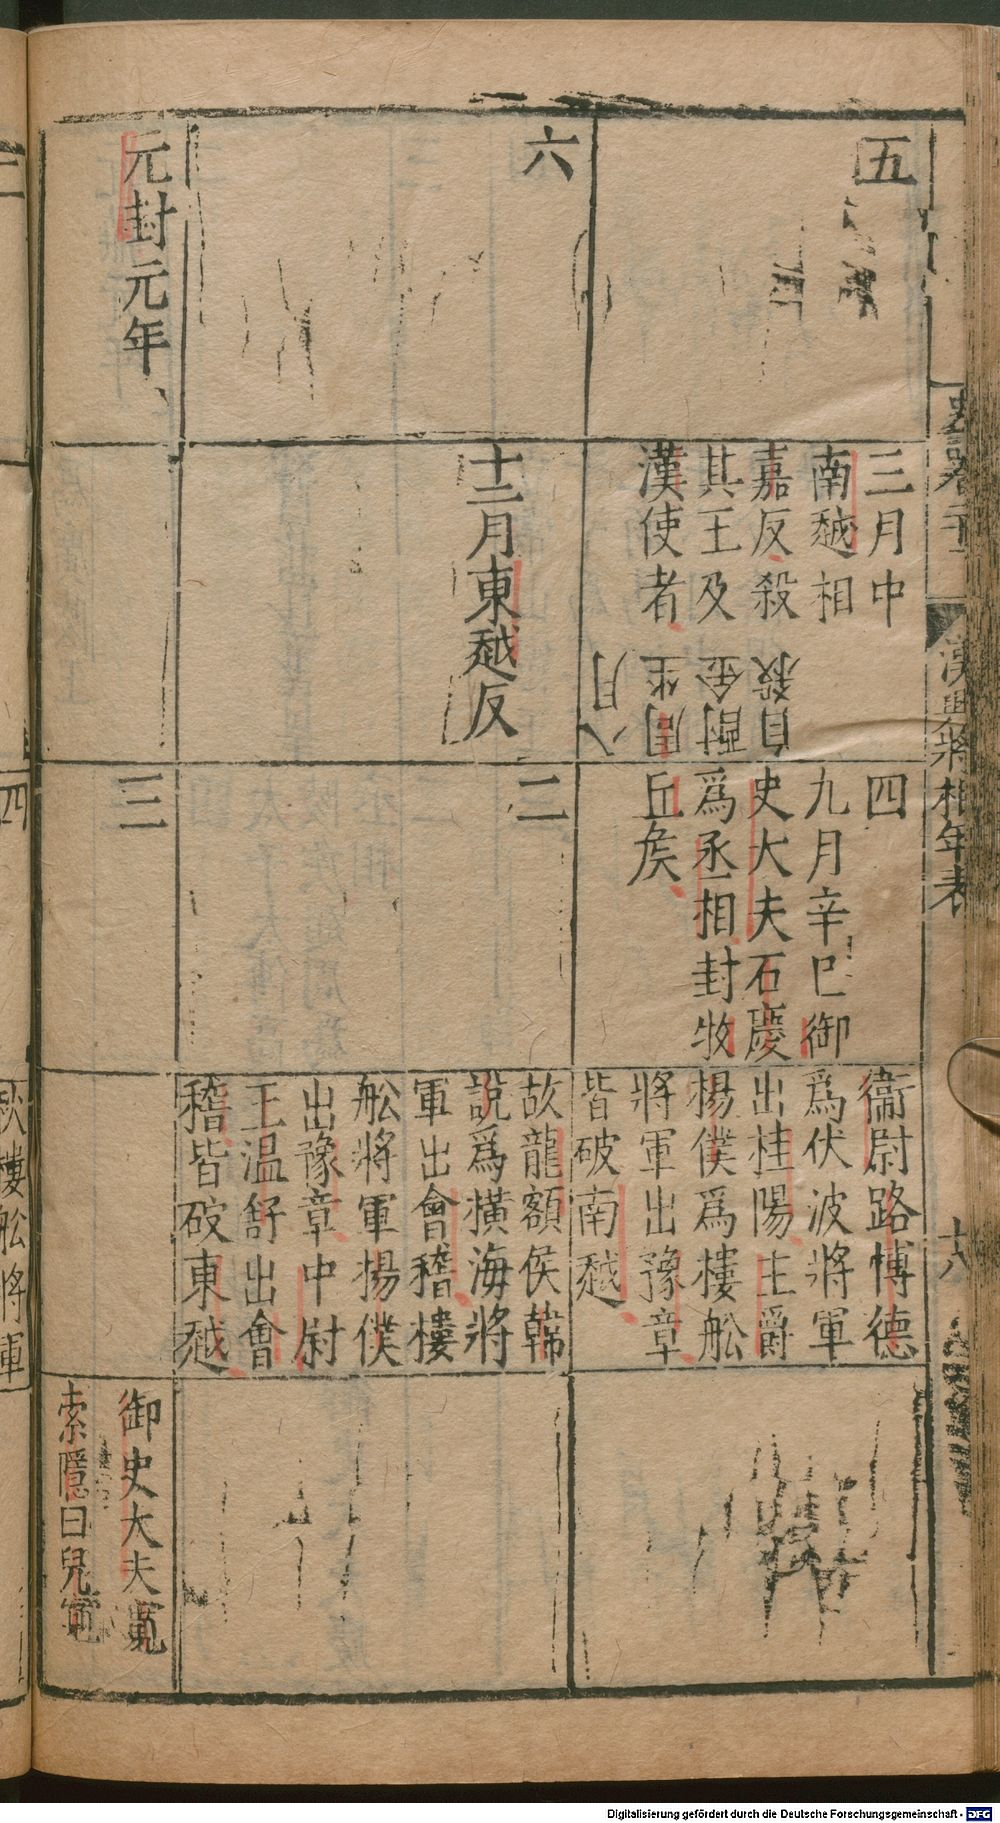 五
三月中
南越相
嘉反殺
其王及
漢使者
八月
周坐
酎金
自殺
四
九月辛巳御
史大夫石慶
爲丞相封牧
丘矦
衞尉路博德
爲伏波將軍
出桂陽主爵
楊僕爲樓舩
將軍出豫章
皆破南越
六
十二月東越反
二
故龍額侯韓
說爲橫海將
軍出會稽樓
舩將軍楊僕
出豫章中尉
王温舒出會
稽皆破東越
元封元年
三
御史大夫寬
索隱曰兒寬
漢興將相年表
十八
四
秋樓舩將軍
Digitalisierung gefördert durch die Deutsche Forschungsgemeinschaft - DFG